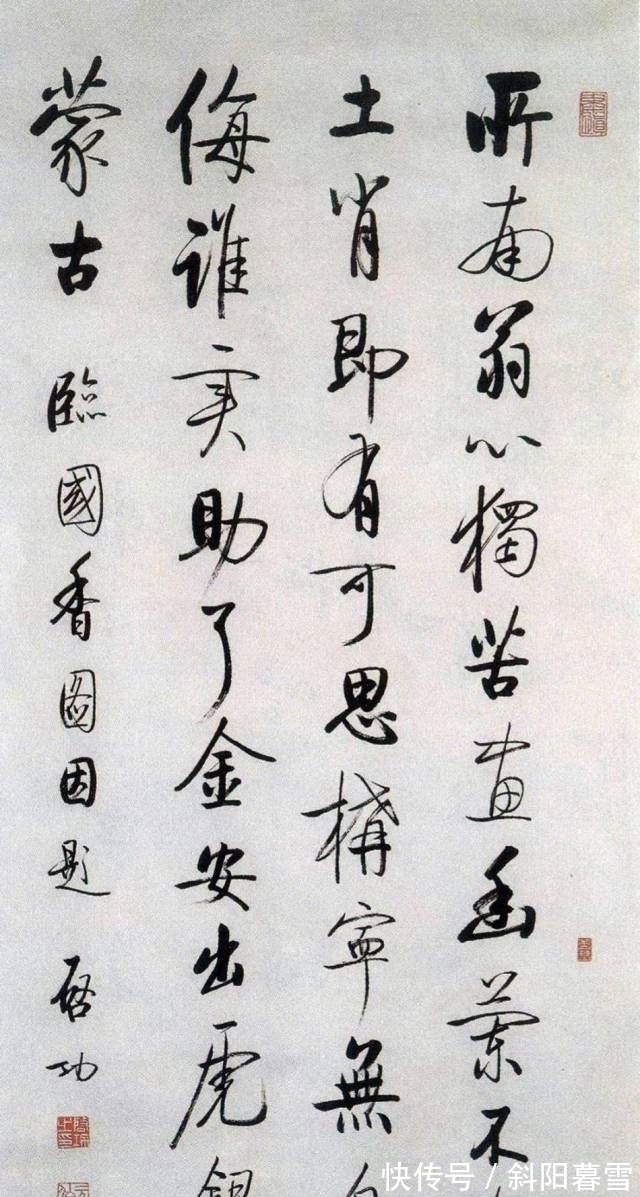 所南翁心獨苦畫幽蘭不
土肖即有可思構寧無
侮誰实助了金安出虎
蒙古 臨國香圖因題 啓功
快传号/斜阳暮雪